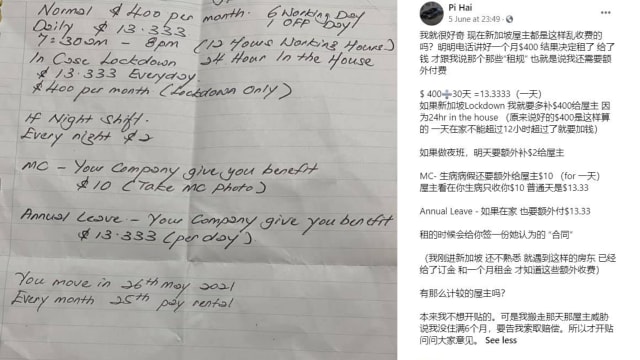 Normal $400 per month. 6 Working Day
Daily $13.333 1 OFF Day
7:30am - 8pm (12 Hours Working Hours)
In Case Lockdown 24 Hour In the House
$13.333 Everyday.
$400 per month (Lockdown Only)
If Night Shift.
Every night $2
MC - Your Company give you benefit
$10 (Take MC Photo)
Annual Leave - Your Company give you benefit
$13.333 (per day)
You move in 26th may 2021
Every month 25th pay rental
Pi Hai
5 June at 23:49
我就很好奇 现在新加坡屋主都是这样乱收费的
吗？明明电话讲好一个月$400 结果决定租了 给了
钱 才跟我说那个那些“租规” 也就是说我还需要额
外付费
$ 400➗30天 =13.3333（一天）
如果新加坡Lockdown 我就要多补$400给屋主 因
为24hr in the house （原来说好的$400是这样算
的 一天在家不能超过12小时超过了就要加钱）
如果做夜班，明天要额外补$2给屋主
MC- 生病病假还要额外给屋主$10 （for 一天）
屋主看在你生病只收你$10 普通天是$13.33
Annual Leave - 如果在家 也要额外付$13.33
租的时候会给你签一份她认为的 “合同”
（我刚进新加坡 还不熟悉 就遇到这样的房东 已经
给了订金 和一个月租金 才知道这些额外收费）
有那么计较的屋主吗？
本来我不想开贴的。可是我搬走那天那屋主威胁
说我没住满6个月，要告我索取赔偿。所以才开贴
问问大家意见。 See less